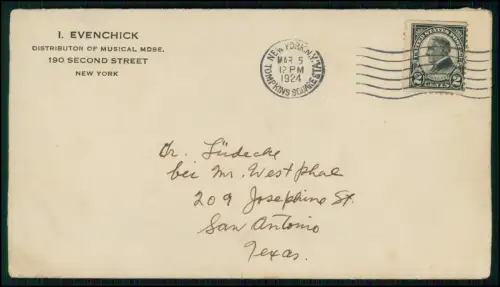 I. EVENCHICK
DISTRIBUTOR OF MUSICAL MDSE.
190 SECOND STREET
NEW YORK
NEW YORK, N.Y.
MAR 5
12 PM
1924
TOMPKINS SQUARE STA.
UNITED STATES POSTAGE
2 CENTS 2
Dr. Lüdecke
bei Mr. Westphal
209 Josephine St.
San Antonio
Texas.